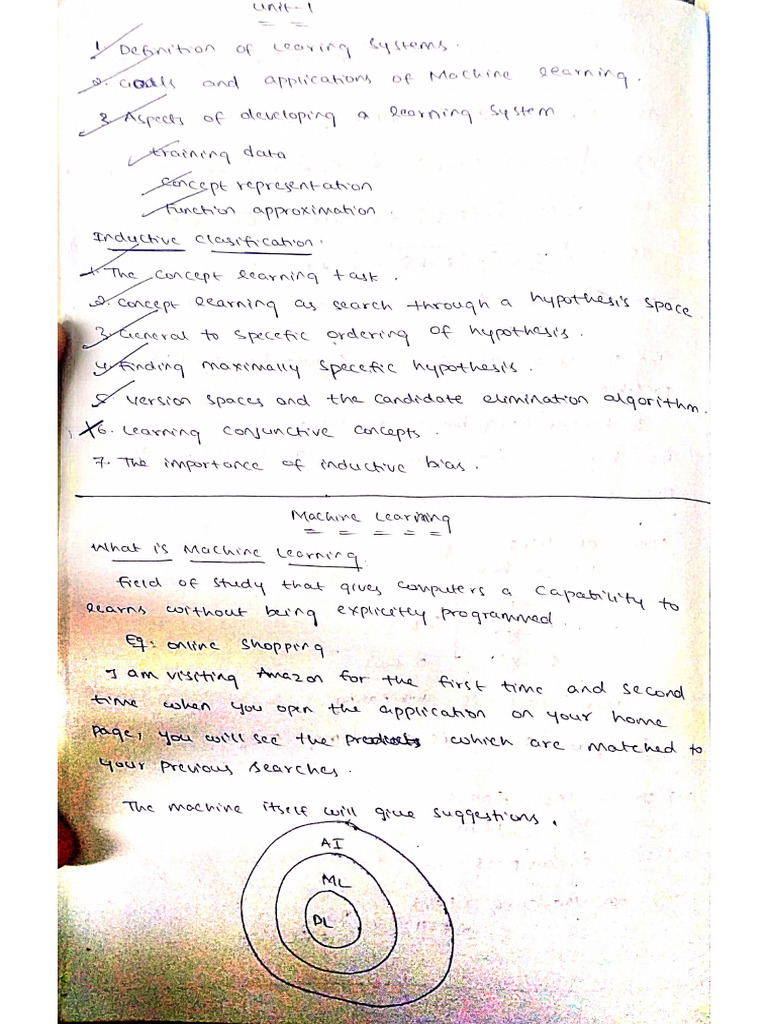 Unit-1
1. Definition of Learing Systems.
2. Goals and applications of Machine learning.
3. Aspects of developing a learning System
training data
concept representation
function approximation.
Inductive Clasification.
1. The concept learning task.
2. concept learning as search through a hypothesis space
3. General to specefic ordering of hypothesis.
4. finding maximally specefic hypothesis.
5 version spaces and the candidate elimination algorithm.
6. Learning conjunctive concepts.
7. The importance of inductive bias.
Machine Learning
What is Machine Learning
field of study that gives computers a capability to
learns without being explicitly programmed.
Eg: online shopping.
I am visiting Amazon for the first time and second
time when you open the application on your home
page, you will see the products which are matched to
your previous searches.
The machine itself will give suggestions.
AI
ML
DL